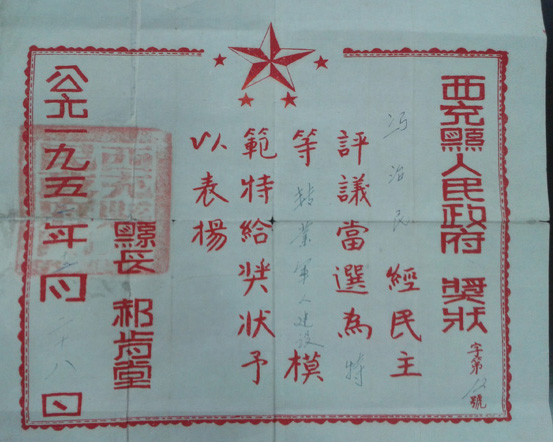 西充縣人民政府 獎狀 字第 號
治民 經民主
評議當選為特
等業軍人建设模
範特給奬狀予
以表揚
縣長 郝肯堂
公元一九五 年 月二十八日